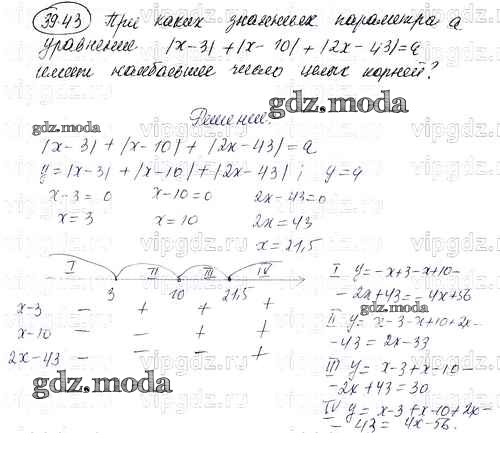 39.43 При каких значениях параметра а
уравнение |x-3|+|x-10|+|2x-43|=a
имеет наибольшее число целых корней?
gdz.moda
Решение:
gdz.moda
|x-3|+|x-10|+|2x-43|=a
y=|x-3|+|x-10|+|2x-43|; y=a
x-3=0 x-10=0 2x-43=0
x=3 x=10 2x=43
x=21,5
I II III IV
3 10 21,5
x-3 - + + +
x-10 - - + +
2x-43 - - - +
gdz.moda
I y=-x+3-x+10-
-2x+43=-4x+56
gdz.moda
II y=x-3-x+10+2x-
-43=2x-33
III y=x-3+x-10-
-2x+43=30
IV y=x-3+x-10+2x-
-43=4x-56.
vipgdz.ru